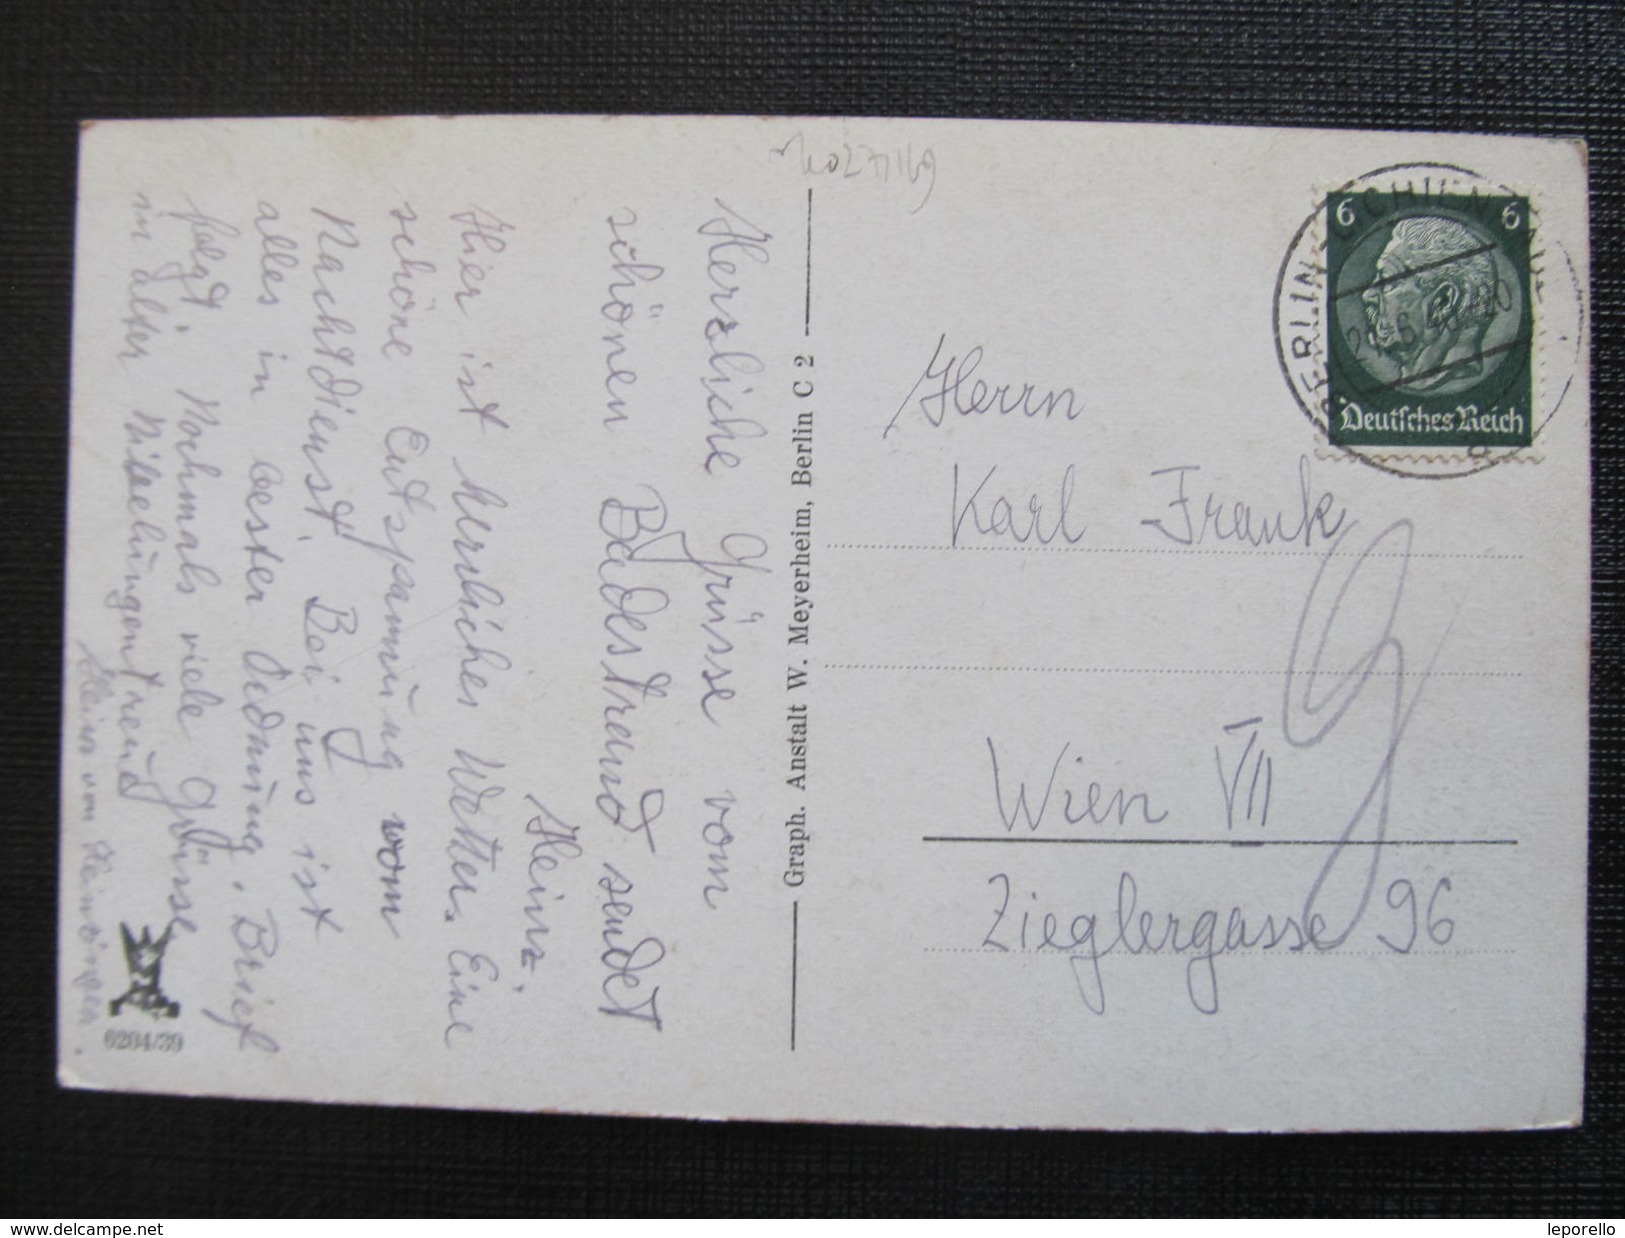 Herzliche Grüsse vom
schönen Badestrand sendet
Heinz.
Hier ist herrliches Wetter. Eine
schöne Entspannung vom
Nachtdienst. Bei uns ist
alles in bester Ordnung. Brief
folgt. Nochmals viele Grüsse
in alter Nibelungentreue
Heinz von
6204/39
Graph. Anstalt W. Meyerheim, Berlin C 2
6 6
Deutsches Reich
BERLIN
21.6.40
Herrn
Karl Frank
Wien VII
Zieglergasse 96
delcampe.net
leporello